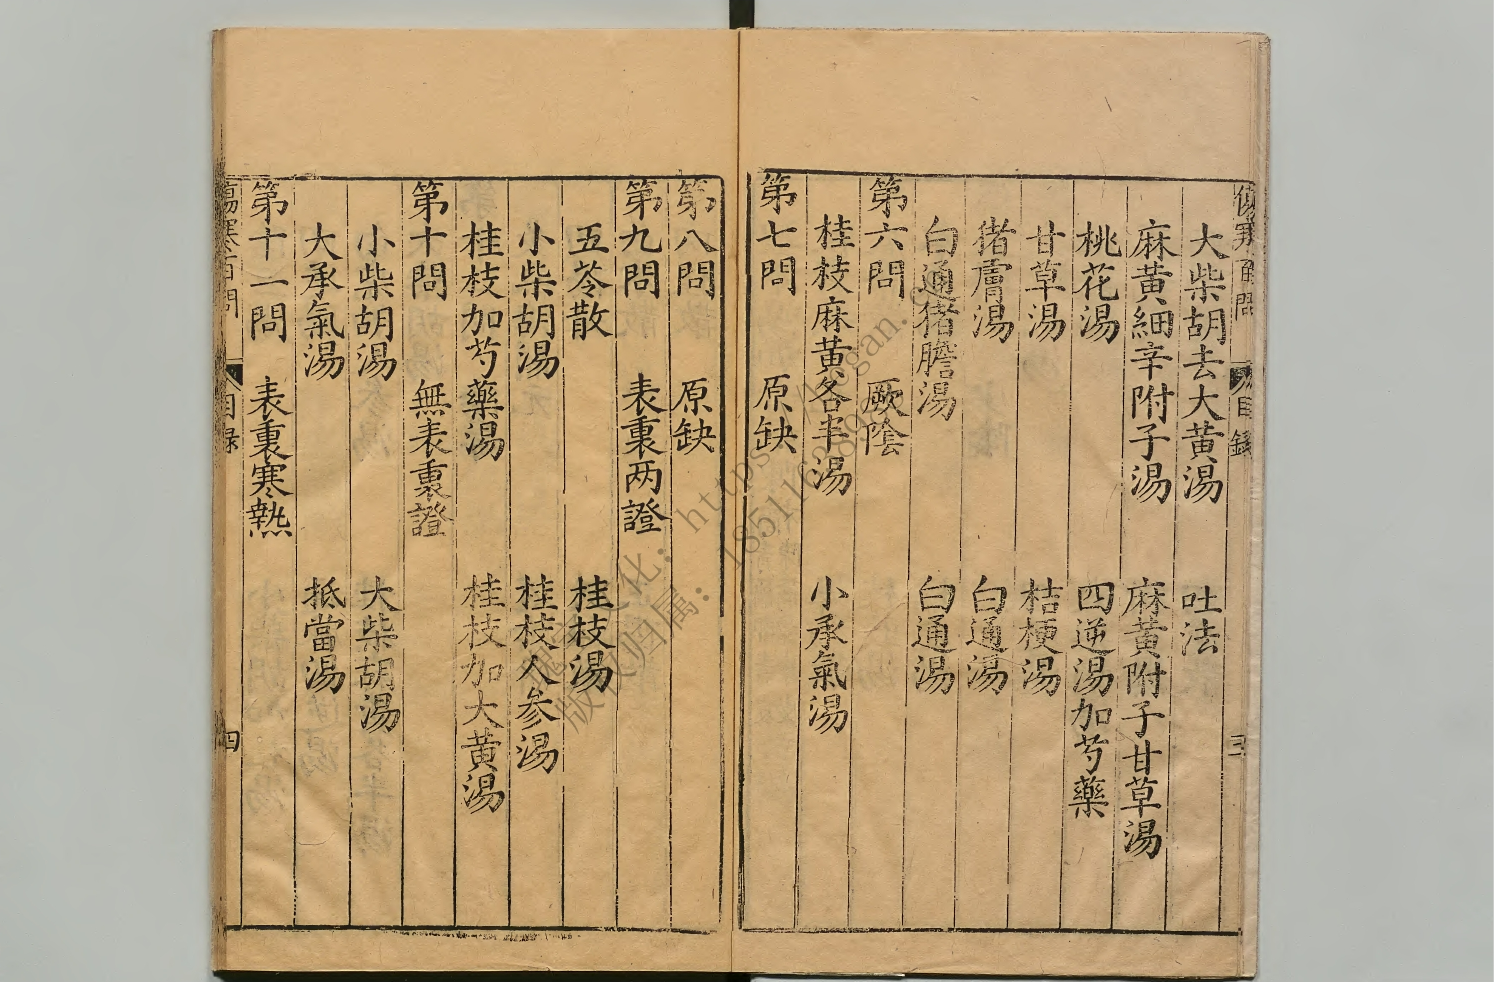 大柴胡去大黃湯 吐法
麻黃細辛附子湯 麻黃附子甘草湯
桃花湯 四逆湯加芍藥
甘草湯 桔梗湯
猪膚湯 白通湯
白通猪膽湯 白通湯
第六問 厥陰
桂枝麻黃各半湯 小承氣湯
第七問 原缺
第八問 原缺
第九問 表裏两證
五苓散 桂枝湯
小柴胡湯 桂枝人參湯
桂枝加芍藥湯 桂枝加大黃湯
第十問 無表裏證
小柴胡湯 大柴胡湯
大承氣湯 抵當湯
第十一問 表裏寒熱
傷寒百問 目録 四
版权归属：